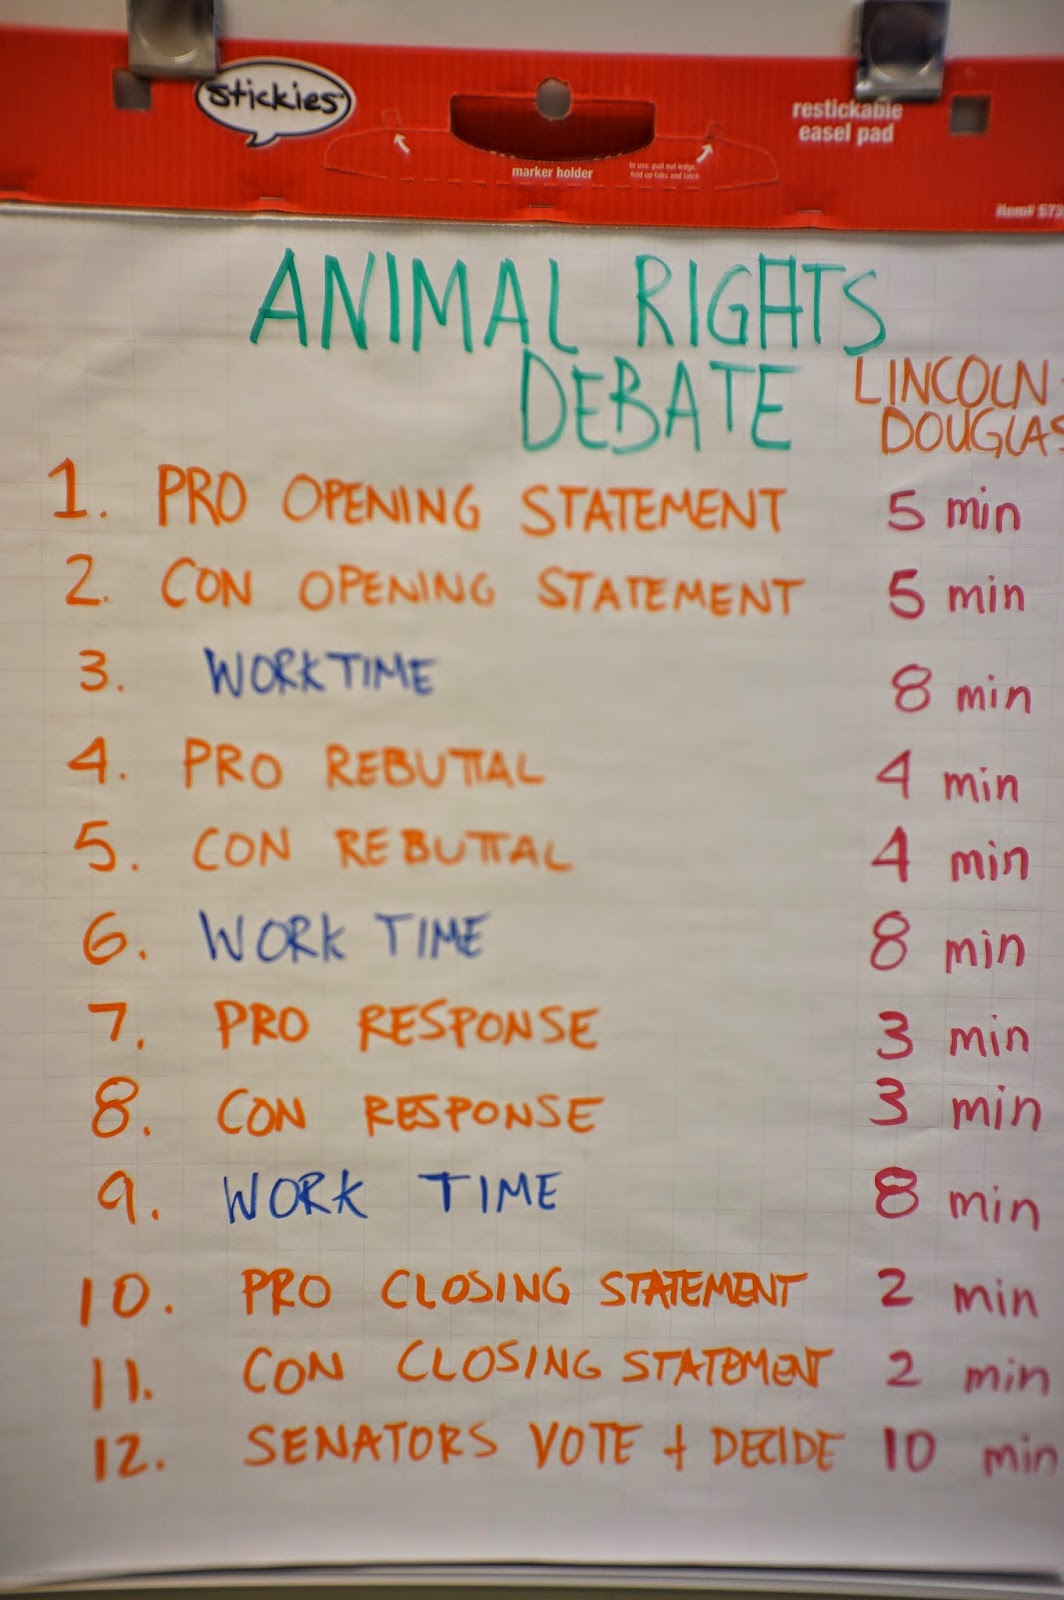 stickies
restickable
easel pad
marker holder
to use: pull out ledge,
fold up tabs and latch
item# 573
ANIMAL RIGHTS
DEBATE
LINCOLN-
DOUGLAS
1. PRO OPENING STATEMENT 5 min
2. CON OPENING STATEMENT 5 min
3. WORK TIME 8 min
4. PRO REBUTTAL 4 min
5. CON REBUTTAL 4 min
6. WORK TIME 8 min
7. PRO RESPONSE 3 min
8. CON RESPONSE 3 min
9. WORK TIME 8 min
10. PRO CLOSING STATEMENT 2 min
11. CON CLOSING STATEMENT 2 min
12. SENATORS VOTE + DECIDE 10 min